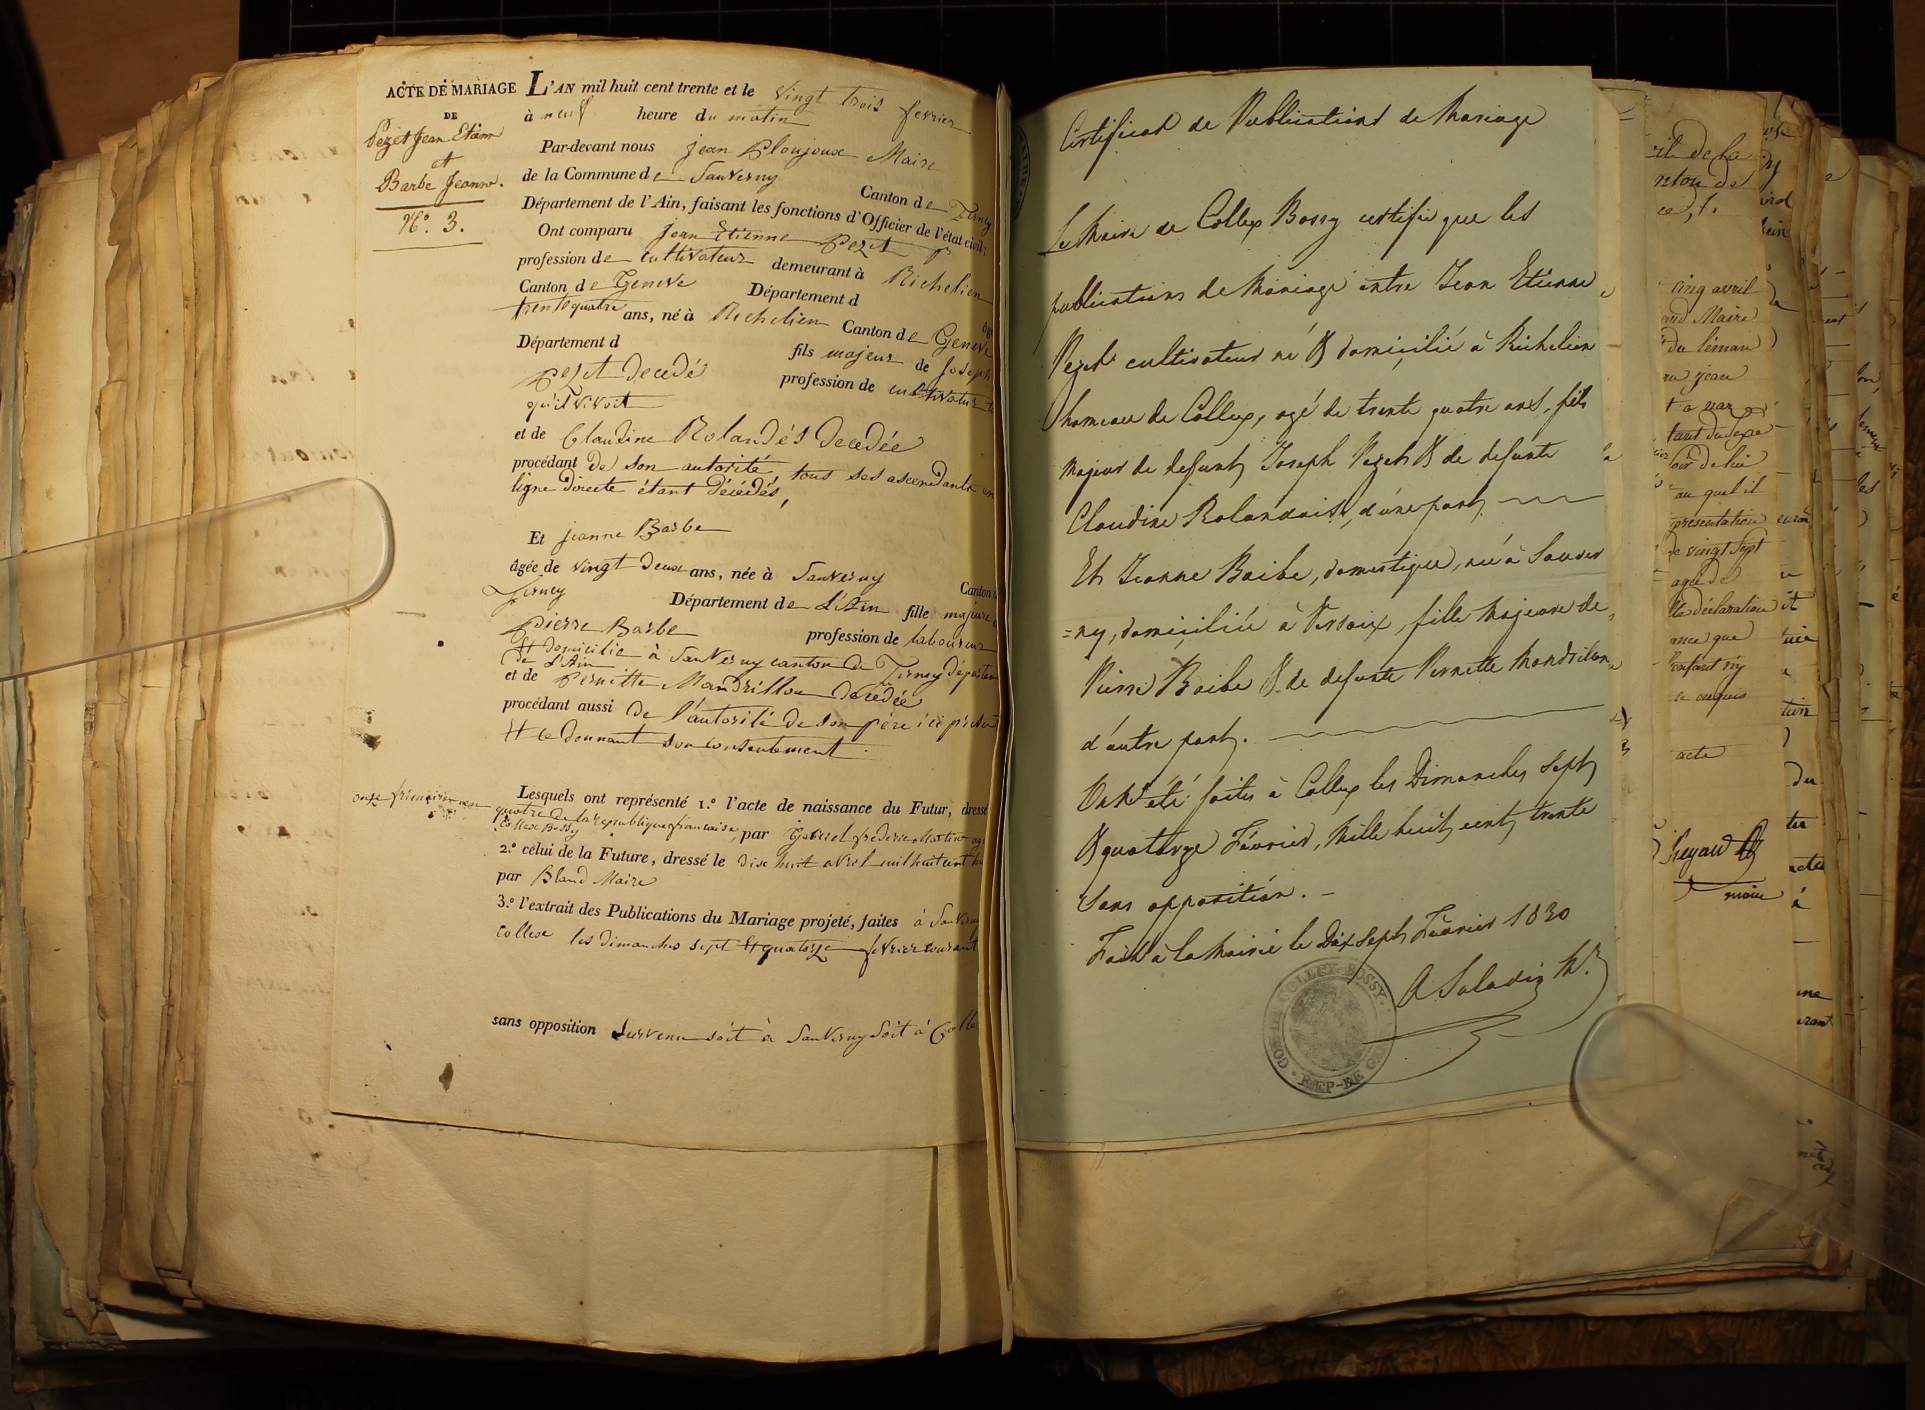 ACTE DE MARIAGE
DE
Pezet Jean Etienne
et
Barbe Jeanne.
N.º 3.
L'AN mil huit cent trente et le vingt trois fevrier
à neuf heure du matin
Par-devant nous jean Ploujoux Maire
de la Commune de Sauverny
Canton de Ferney
Département de l'Ain, faisant les fonctions d'Officier de l'état civil;
Ont comparu Jean Etienne Pezet
profession de cultivateur demeurant à Richelien
Canton de Geneve Département d
trente quatre ans, né à Richelien Canton de Geneve
Département d fils majeur de Joseph
Pezet decedé profession de cultivateur
qu'il vivoit
et de Claudine Rolandés decedée
procédant de son autorité tous ses ascendants en
ligne directe étant décédés,
Et jeanne Barbe
âgée de vingt deux ans, née à Sauverny Canton
Ferney Département de L'Ain fille majeure
Pierre Barbe profession de laboureur
et domicilié à Sauverny canton de Ferney départem
de L'Ain
et de Pernette Mandrillon decedée
procédant aussi de l'autorité de son père ici présent
et ce donnant son consentement.
Lesquels ont représenté 1.º l'acte de naissance du Futur, dressé
onze frimaire an quatre de la republique francaise, par Gabriel frederic Martin
Collex Bossy
2.º celui de la Future, dressé le dix huit avril mil huit cent
par Bland Maire
3.º l'extrait des Publications du Mariage projeté, faites à Sauverny
Collex les dimanches sept et quatorze fevrier courant
sans opposition survenu soit à Sauverny soit à Collex
Certificat de Publications de Mariage
Le Maire de Collex Bossy certifie que les
publications de Mariage entre Jean Etienne
Pezet cultivateur né & domicilié à Richelien
hameau de Collex, agé de trente quatre ans, fils
majeur de defunt Joseph Pezet & de defunte
Claudine Rolandais, d'une part,
Et Jeanne Baibe, domestique, née à Sauver
=ny, domiciliée à Versoix, fille Majeure de
Pierre Baibe & de defunte Pernette Mandrillon
d'autre part.
Ont été faites à Collex les Dimanches sept
& quatorze Février, Mille huit cent trente
sans opposition.
Fait à la Mairie le Dix Sept Février 1830
A Saladin M.e
COLLEX-BOSSY
REP-BE
cinq avril
Maire
du léman
jean
au quel il
presentation
de vingt sept
agé de
déclaration
ance que
acte
maire